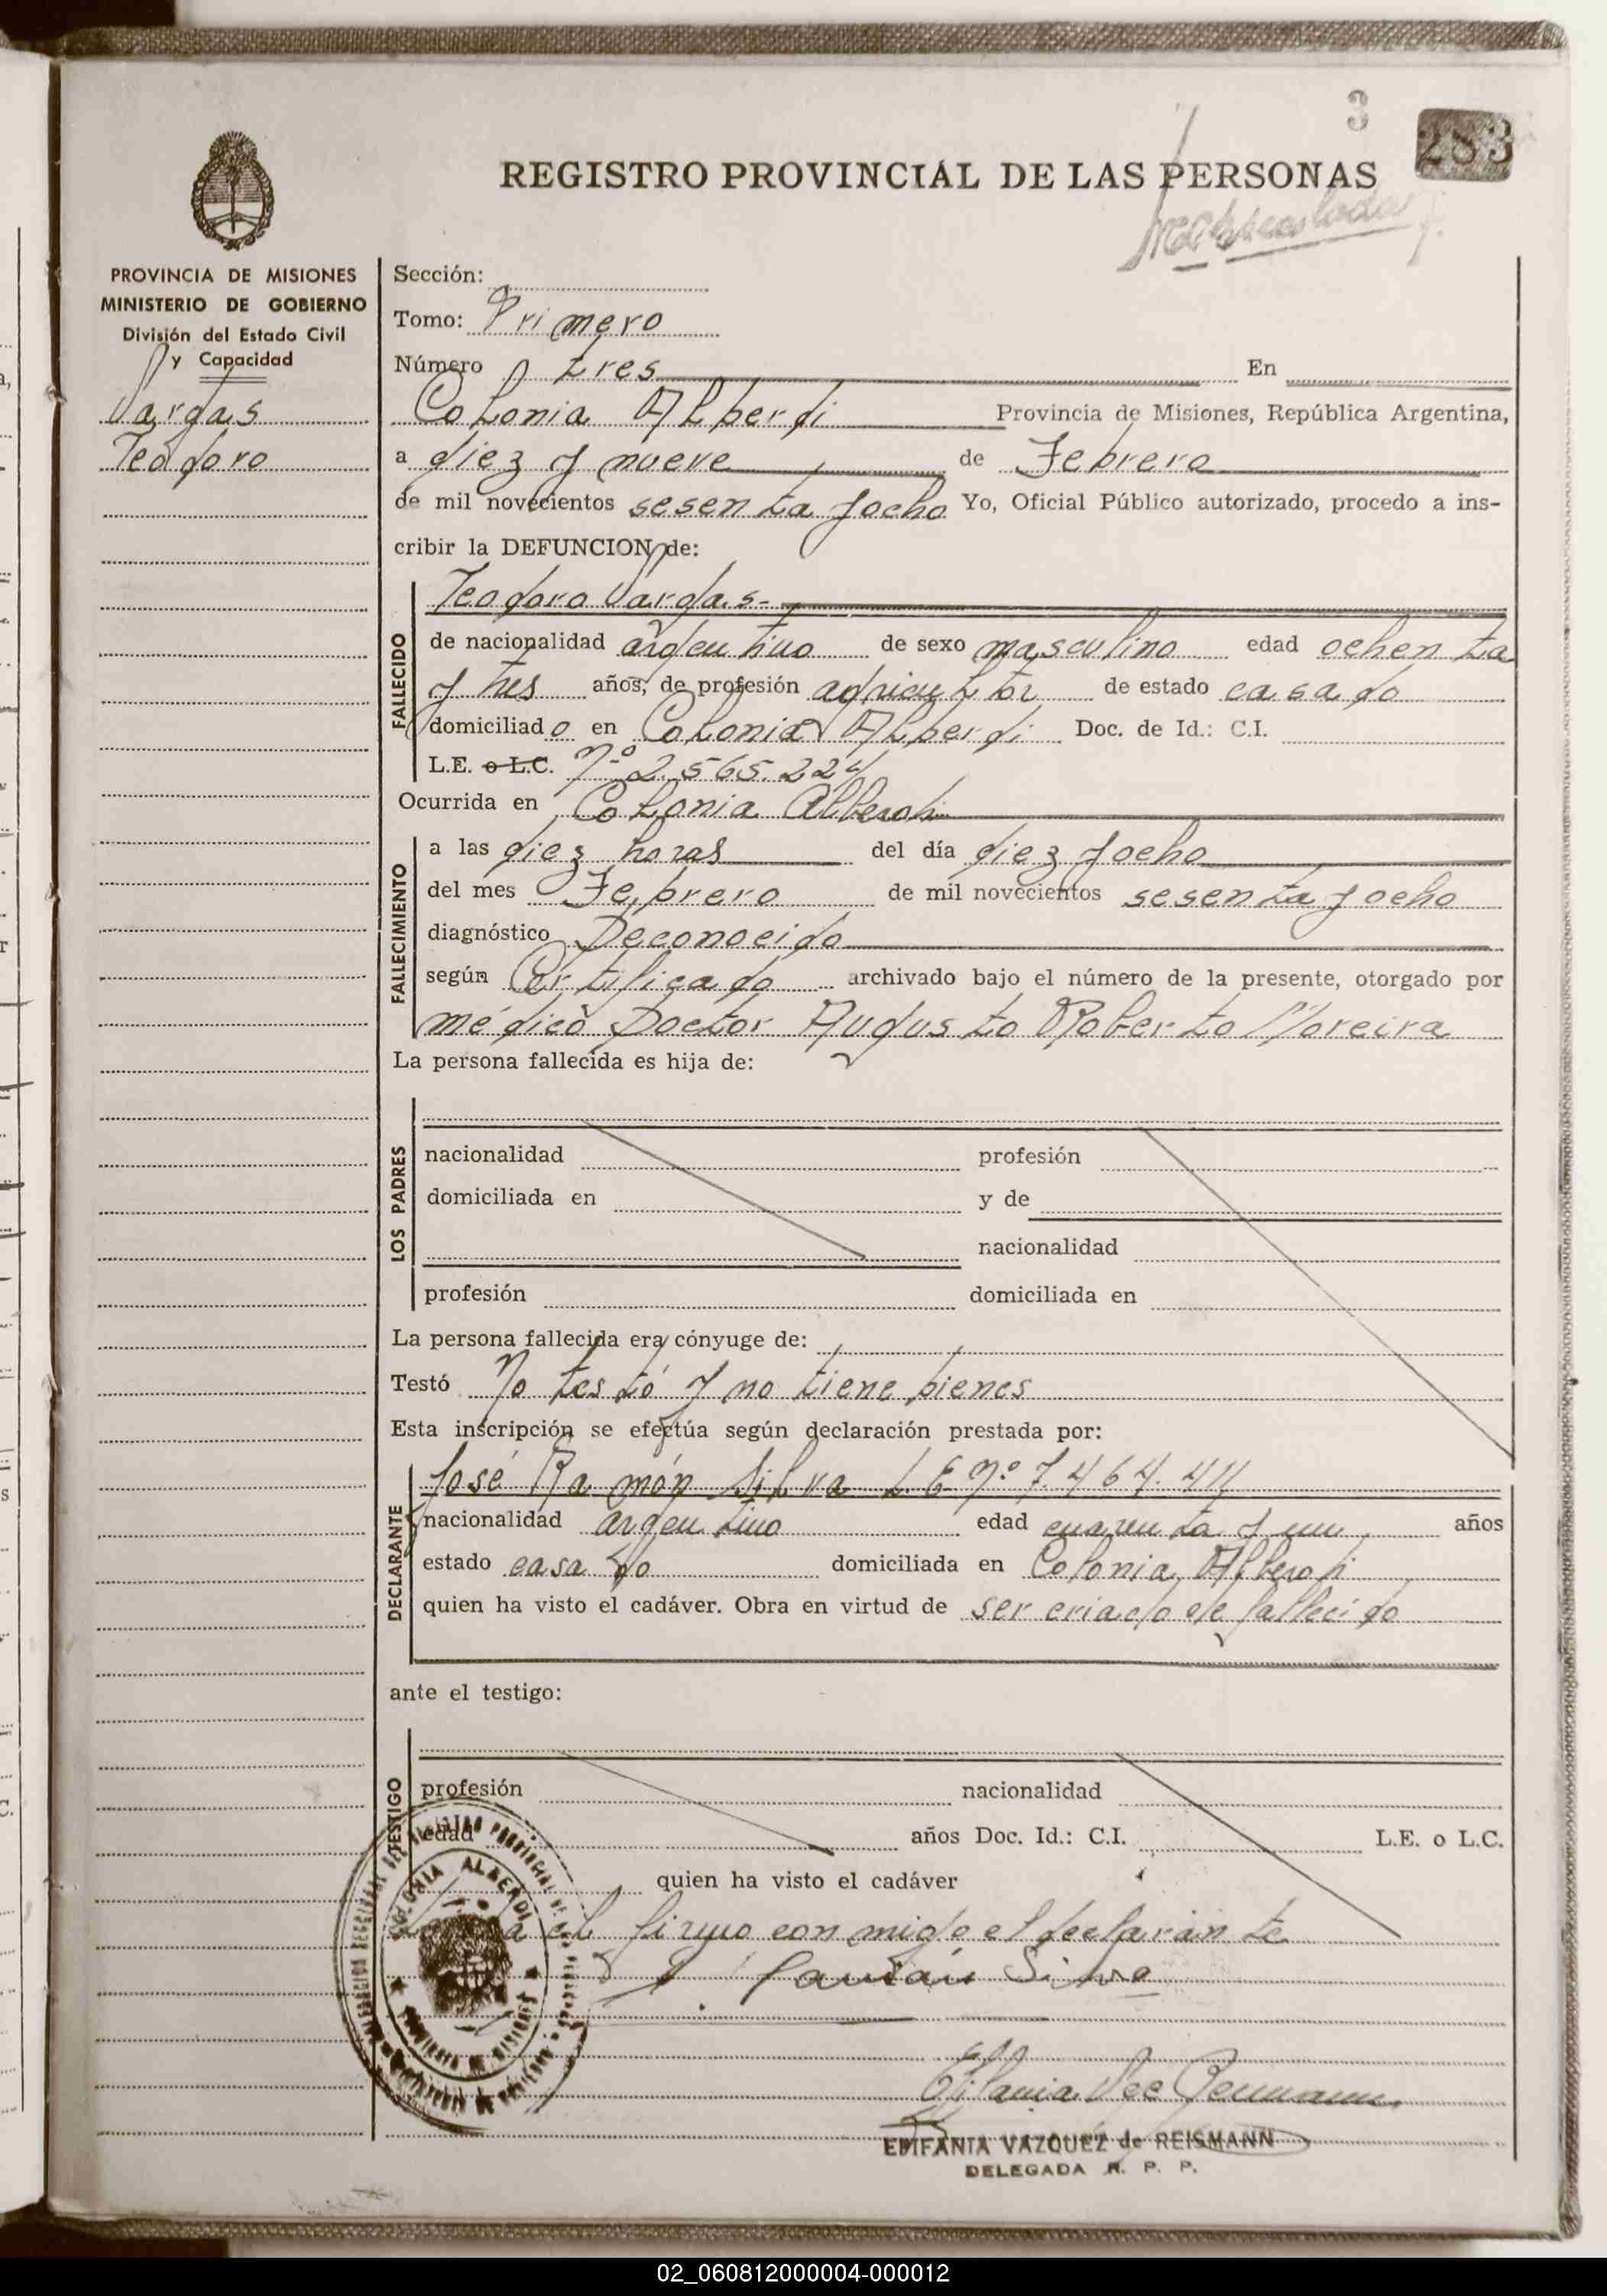 3
283
REGISTRO PROVINCIAL DE LAS PERSONAS
PROVINCIA DE MISIONES
MINISTERIO DE GOBIERNO
División del Estado Civil
y Capacidad
Vargas
Teodoro
Sección:
Tomo: Primero
Número tres En
Colonia Alberdi Provincia de Misiones, República Argentina,
a diez y nueve de Febrero
de mil novecientos sesenta y ocho Yo, Oficial Público autorizado, procedo a ins-
cribir la DEFUNCION de:
FALLECIDO
Teodoro Vargas.-
de nacionalidad argentino de sexo masculino edad ochenta
y tres años, de profesión agricultor de estado casado
domiciliado en Colonia Alberdi Doc. de Id.: C.I.
L.E. o L.C. Nº 2.565.224
Ocurrida en Colonia Alberdi
FALLECIMIENTO
a las diez horas del día diez y ocho
del mes Febrero de mil novecientos sesenta y ocho
diagnóstico Deconocido
según Certificado archivado bajo el número de la presente, otorgado por
médico Doctor Augusto Roberto Moreira
La persona fallecida es hija de:
LOS PADRES
nacionalidad profesión
domiciliada en y de
nacionalidad
profesión domiciliada en
La persona fallecida era cónyuge de:
Testó No testó y no tiene bienes
Esta inscripción se efectúa según declaración prestada por:
DECLARANTE
José Ramón Silva L E Nº 7.464.411
nacionalidad argentino edad cuarenta y un años
estado casado domiciliada en Colonia Alberdi
quien ha visto el cadáver. Obra en virtud de ser criado de fallecido
ante el testigo:
TESTIGO
profesión nacionalidad
edad años Doc. Id.: C.I. L.E. o L.C.
quien ha visto el cadáver
firmo conmigo el declarante
Silva
COLONIA ALBERDI
PROVINCIA DE MISIONES
EPIFANIA VAZQUEZ de REISMANN
DELEGADA R. P. P.
02_060812000004-000012